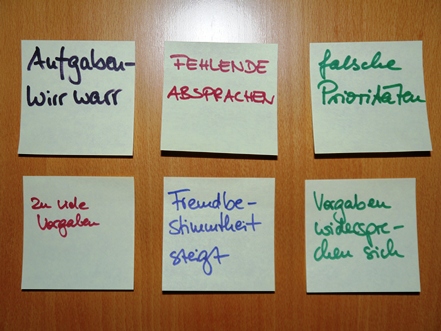 Aufgaben-
wirrwarr
FEHLENDE
ABSPRACHEN
falsche
Prioritäten
zu viele
Vorgaben
Fremdbe-
stimmtheit
steigt
Vorgaben
widerspre-
chen sich